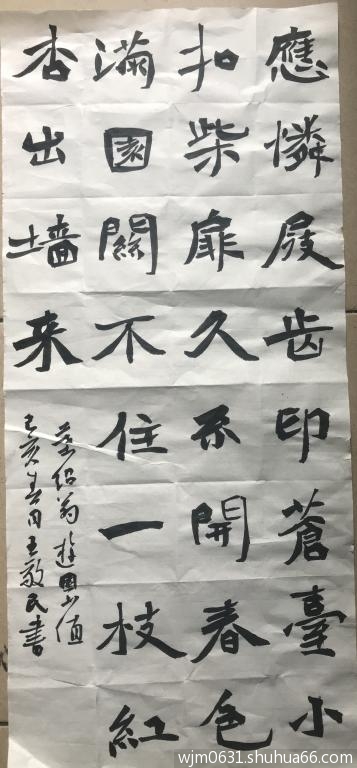 應憐屐齿印蒼臺小
扣柴扉久不開春色
滿園關不住一枝紅
杏出墙来
葉绍翁遊園不值
己亥春月王敬民書
@wjm0631.shuhua66.com